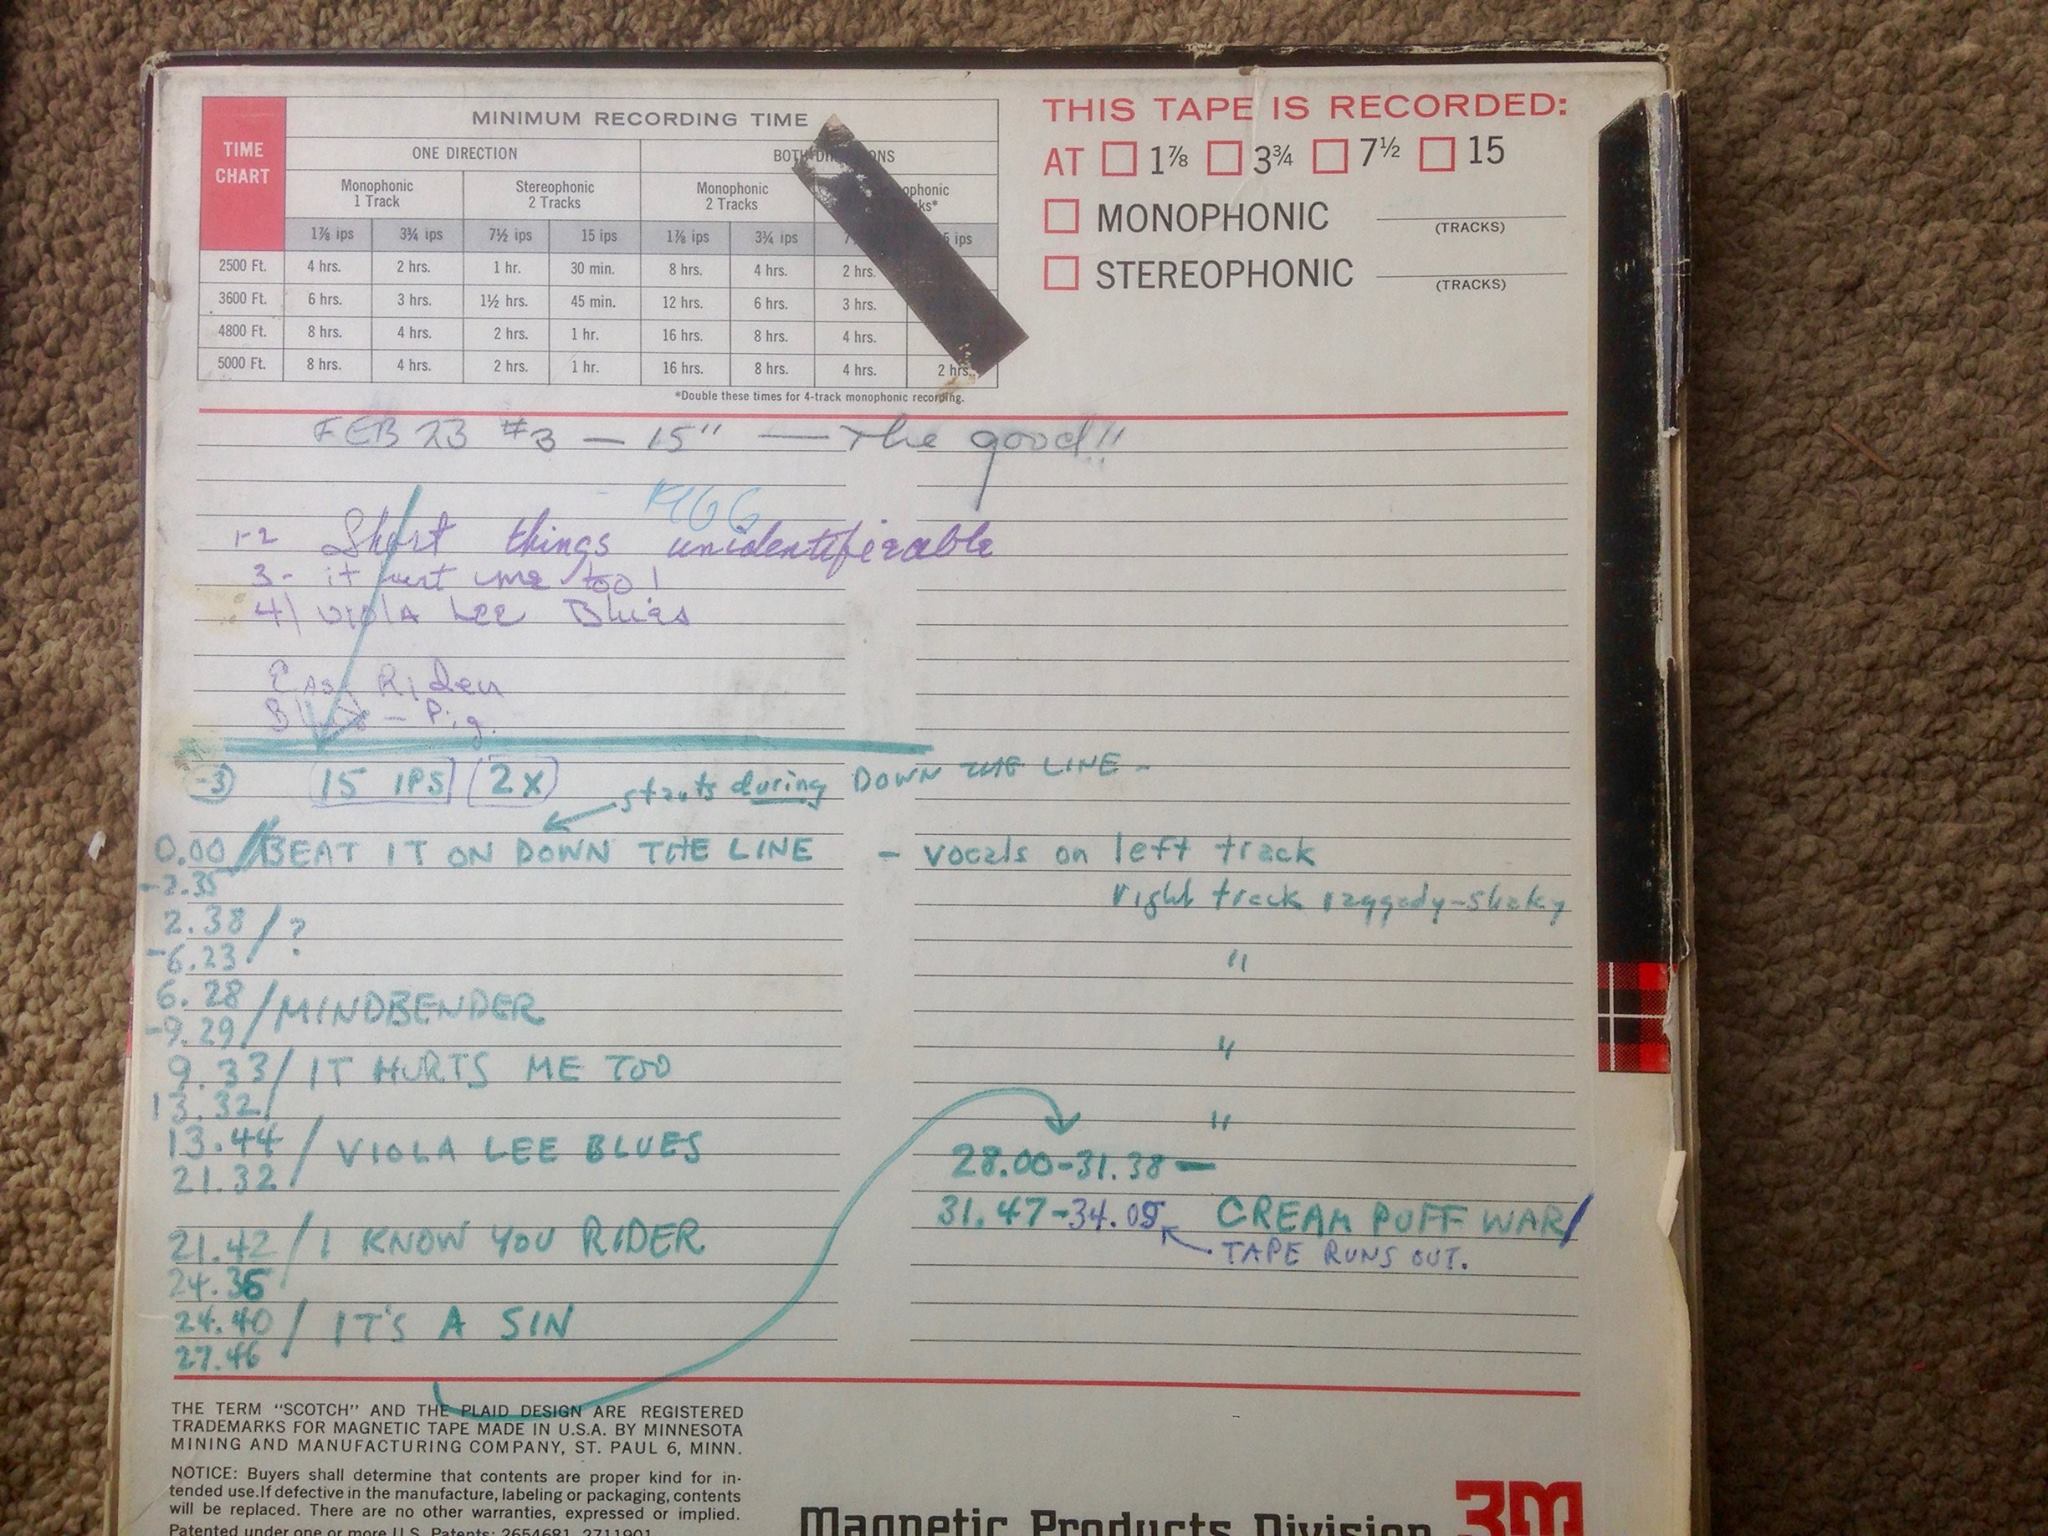 TIME CHART
MINIMUM RECORDING TIME
ONE DIRECTION
Monophonic 1 Track
Stereophonic 2 Tracks
Monophonic 2 Tracks
1⅞ ips 3¾ ips 7½ ips 15 ips 1⅞ ips 3¾ ips ips
2500 Ft. 4 hrs. 2 hrs. 1 hr. 30 min. 8 hrs. 4 hrs. 2 hrs.
3600 Ft. 6 hrs. 3 hrs. 1½ hrs. 45 min. 12 hrs. 6 hrs. 3 hrs.
4800 Ft. 8 hrs. 4 hrs. 2 hrs. 1 hr. 16 hrs. 8 hrs. 4 hrs.
5000 Ft. 8 hrs. 4 hrs. 2 hrs. 1 hr. 16 hrs. 8 hrs. 4 hrs. 2 hrs.
*Double these times for 4-track monophonic recording.
THIS TAPE IS RECORDED:
AT 1⅞ 3¾ 7½ 15
MONOPHONIC (TRACKS)
STEREOPHONIC (TRACKS)
FEB 23 #3 — 15" — The good!!
1966
1-2 Short things unidentifieable
3- it hurt me too!
4) Viola Lee Blues
Easy Rider
Blues - Pig.
-3 15 IPS 2X starts during DOWN THE LINE -
0.00 / BEAT IT ON DOWN THE LINE - vocals on left track
-2.35 right track raggedy-shaky
2.38 / ?
-6.23 "
6.28 / MINDBENDER
-9.29 "
9.33 / IT HURTS ME TOO
13.32 "
13.44 / VIOLA LEE BLUES
21.32
21.42 / I KNOW YOU RIDER
24.36
24.40 / IT'S A SIN
27.46
28.00-31.38 -
31.47-34.05 CREAM PUFF WAR/
TAPE RUNS OUT.
THE TERM "SCOTCH" AND THE PLAID DESIGN ARE REGISTERED
TRADEMARKS FOR MAGNETIC TAPE MADE IN U.S.A. BY MINNESOTA
MINING AND MANUFACTURING COMPANY, ST. PAUL 6, MINN.
NOTICE: Buyers shall determine that contents are proper kind for in-
tended use. If defective in the manufacture, labeling or packaging, contents
will be replaced. There are no other warranties, expressed or implied.
Patented under one or more U.S. Patents: 2654681, 2711901
Magnetic Products Division 3M